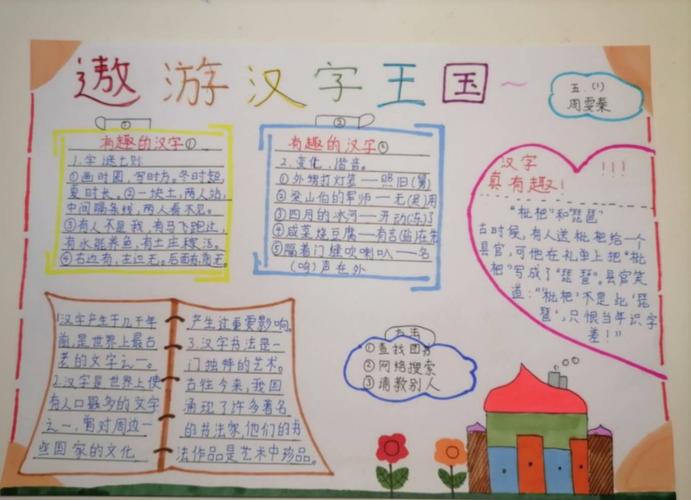 遨游汉字王国~
五.(1)
周雯蓁
①
有趣的汉字①
1.字谜七则
①画时圆,写时方,冬时短,
夏时长。②一块土,两人站,
中间隔条线,两人看不见。
③有人不是我,有马飞跑过,
有水能养鱼,有土庄稼活。
④右边有,左边无。后面有
②
有趣的汉字②
2.变化、谐音。
①外甥打灯笼——照旧(舅)
②梁山伯的军师——无(吴)用
③四月的冰河——开动(冻)了
④咸菜烧豆腐——有言(盐)在先
⑤隔着门缝吹喇叭——名
(鸣)声在外
汉字
真有趣!
!!!
“枇杷”和“琵琶”
古时候,有人送枇杷给一个
县官,可他在礼单上把“枇
杷”写成了“琵琶”。县官笑
道:“‘枇杷’不是此‘琵
琶’,只恨当年识字
差!”
1.汉字产生于几千年
前,是世界上最古
老的文字之一。
2.汉字是世界上使
用人口最多的文字
之一,曾对周边一
些国家的文化
产生过重要影响。
3.汉字书法是一
门独特的艺术。
古往今来,我国
涌现了许多著名
的书法家,他们的书
法作品是艺术中珍品。
办法
①查找图书
②网络搜索
③请教别人